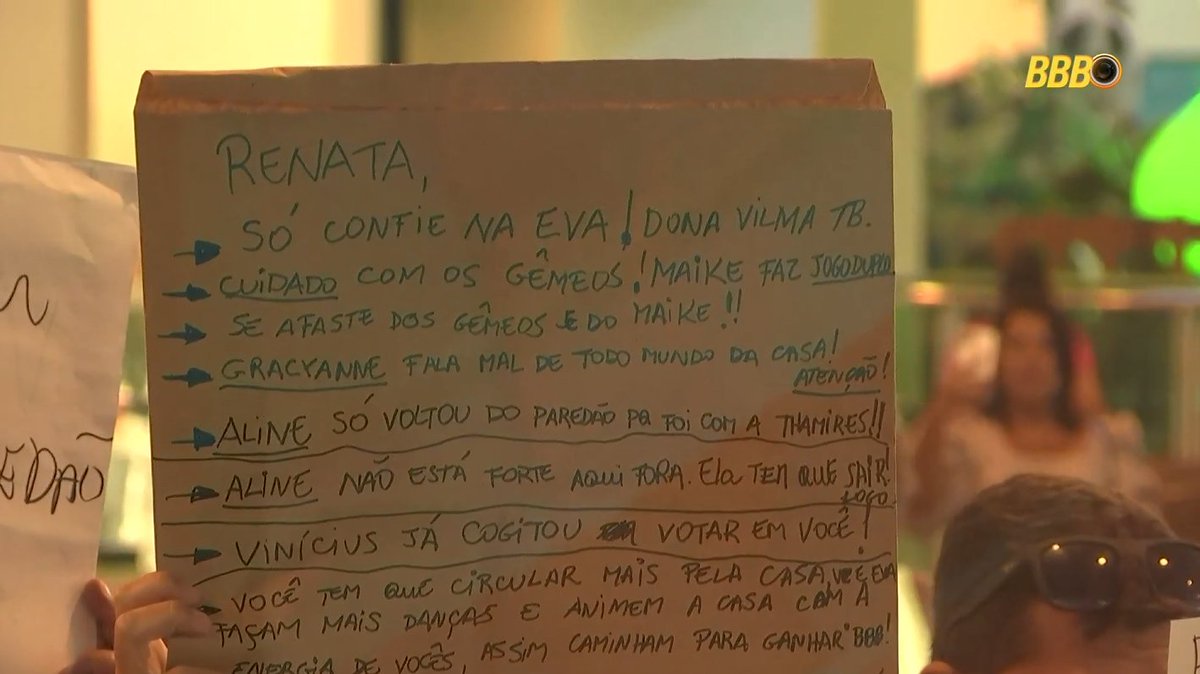 BBB
RENATA,
SÓ CONFIE NA EVA! DONA VILMA TB.
CUIDADO COM OS GÊMEOS! MAIKE FAZ JOGO DUPLO.
SE AFASTE DOS GÊMEOS E DO MAIKE!!
GRACYANNE FALA MAL DE TODO MUNDO DA CASA!
ATENÇÃO!
ALINE SÓ VOLTOU DO PAREDÃO PQ FOI COM A THAMIRES!!
ALINE NÃO ESTÁ FORTE AQUI FORA. Ela TEM QUE SAIR!
LOGO
VINÍCIUS JÁ COGITOU VOTAR EM VOCÊ!
VOCÊ TEM QUE CIRCULAR MAIS PELA CASA, VC E EVA
FAÇAM MAIS DANÇAS E ANIMEM A CASA COM A
ENERGIA DE VOCÊS, ASSIM CAMINHAM PARA GANHAR BBB!
EDÃO